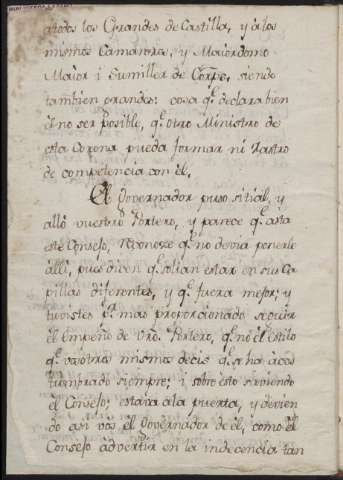 atodos los Grandes de Castilla, y a los
mismos Camareros, y Maiordomo
Maior i Sumiller de Corps, siendo
tambien grandes: cosa q.e declara bien
el no ser posible, q.e otro Ministro de
esta Corona pueda formar ni rastro
de competencia con èl.
El Governador puso sitial, y
allò vuestro Portero, y parece q.e asta
este Consejo, reconoze q.e no devia ponerle
alli, pues dicen q.e solian estar en sus Ca
pillas diferentes, y q.e fuera mejor; y
tuvistes p.r mas proporcionado seguir
el Empeño de vro. Portero, q.e no èl estilo
q.e vosotros mismos decis q.e se ha acos
tumbrado siempre; i sobre esto sirviendo
el Consejo; estava a la puerta, y devien
do asi vos el Governador de èl, como el
Consejo advertir en la indecencia tan